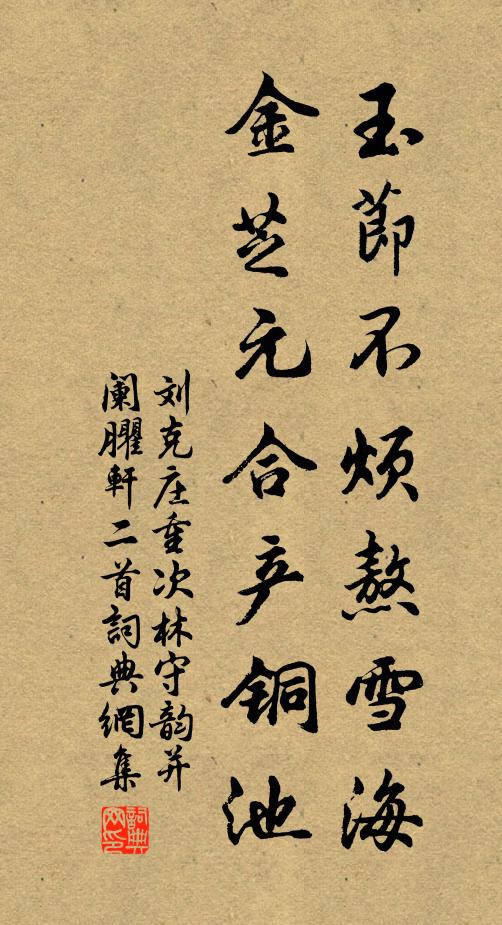 玉節不烦熬雪海
金芝元合产铜池
刘克庄重次林守韵并
阑臞軒二首詞典網集
詞典
网印